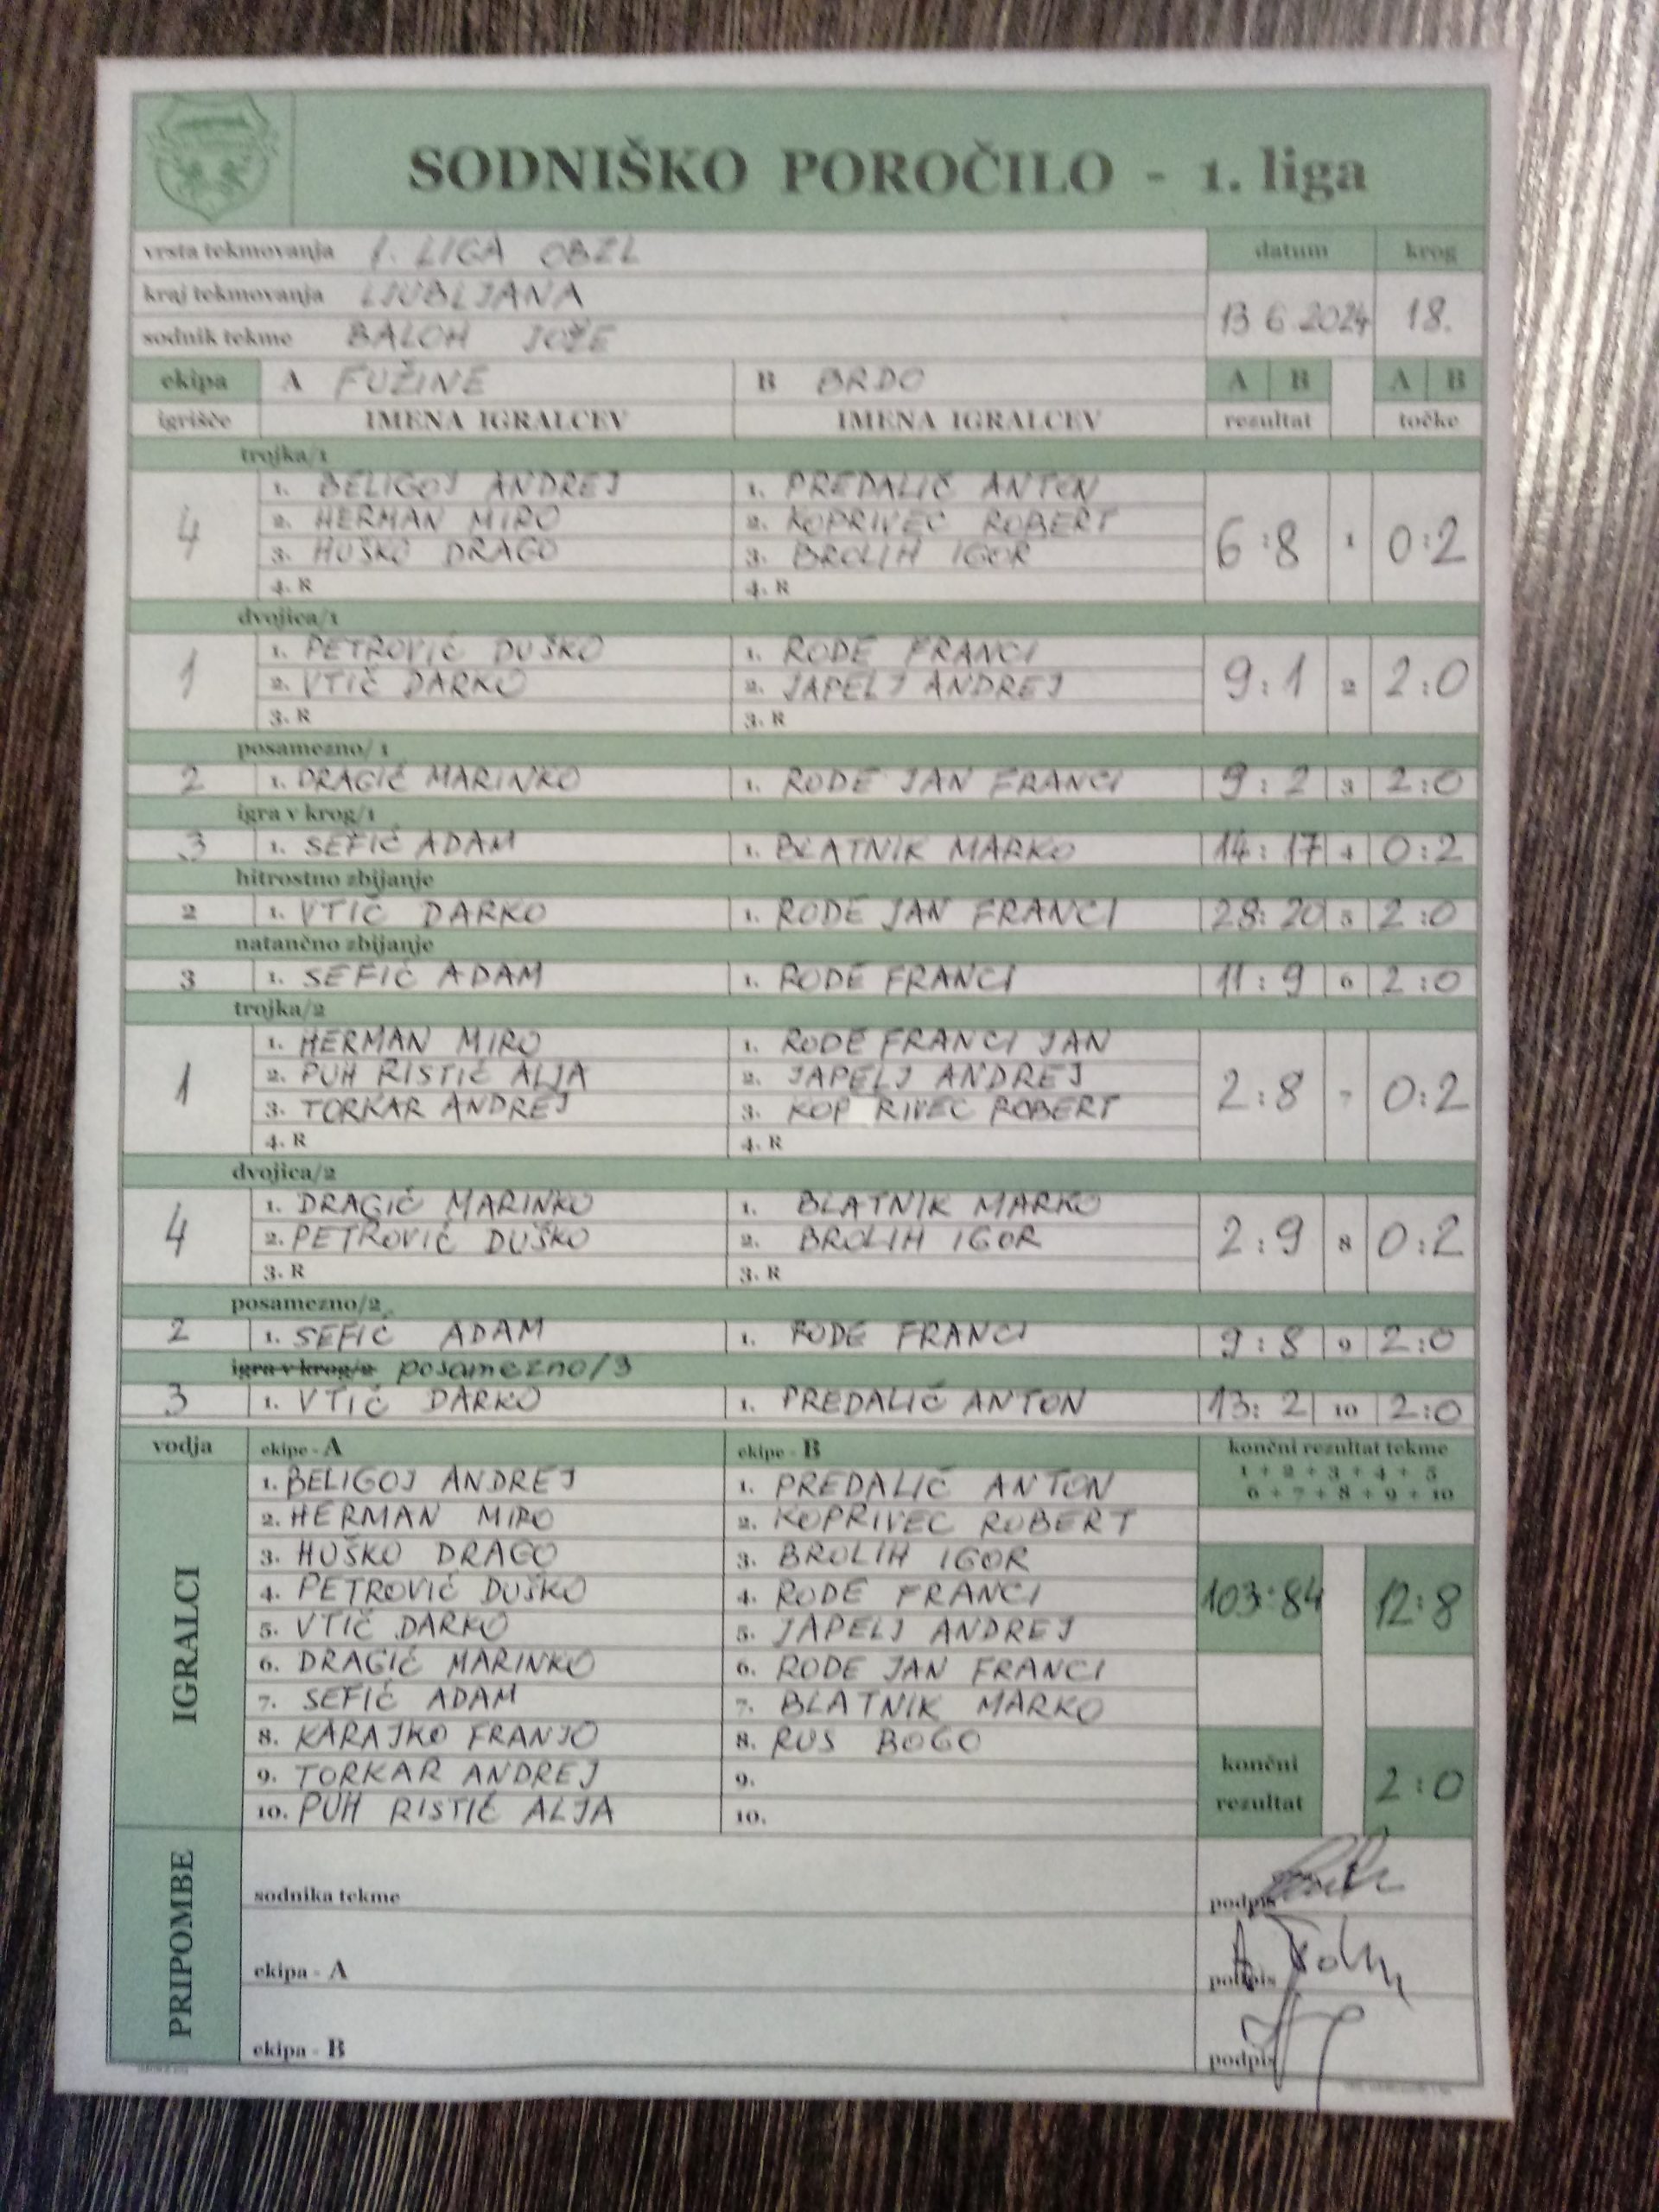 SODNIŠKO POROČILO - 1. liga
vrsta tekmovanja 1. LIGA OBZL datum krog
kraj tekmovanja LJUBLJANA 13 6 2024 18.
sodnik tekme BALOH JOŽE
ekipa A FUŽINE B BRDO A B A B
igrišče IMENA IGRALCEV IMENA IGRALCEV rezultat točke
trojka/1
4 1. BELIGOJ ANDREJ 1. PREDALIČ ANTON 6:8 1 0:2
2. HERMAN MIRO 2. KOPRIVEC ROBERT
3. HUŠKO DRAGO 3. BROLIH IGOR
4. R 4. R
dvojica/1
1 1. PETROVIĆ DUŠKO 1. RODE FRANCI 9:1 2 2:0
2. VTIČ DARKO 2. JAPELJ ANDREJ
3. R 3. R
posamezno/1
2 1. DRAGIĆ MARINKO 1. RODE JAN FRANCI 9:2 3 2:0
igra v krog/1
3 1. SEFIĆ ADAM 1. BLATNIK MARKO 14:17 4 0:2
hitrostno zbijanje
2 1. VTIČ DARKO 1. RODE JAN FRANCI 28:20 5 2:0
natančno zbijanje
3 1. SEFIĆ ADAM 1. RODE FRANCI 11:9 6 2:0
trojka/2
1 1. HERMAN MIRO 1. RODE FRANCI JAN 2:8 7 0:2
2. PUH RISTIĆ ALJA 2. JAPELJ ANDREJ
3. TORKAR ANDREJ 3. KOP RIVEC ROBERT
4. R 4. R
dvojica/2
4 1. DRAGIĆ MARINKO 1. BLATNIK MARKO 2:9 8 0:2
2. PETROVIĆ DUŠKO 2. BROLIH IGOR
3. R 3. R
posamezno/2
2 1. SEFIĆ ADAM 1. RODE FRANCI 9:8 9 2:0
igra v krog/2 posamezno/3
3 1. VTIČ DARKO 1. PREDALIČ ANTON 13:2 10 2:0
vodja ekipe - A ekipe - B končni rezultat tekme
1 + 2 + 3 + 4 + 5
6 + 7 + 8 + 9 + 10
IGRALCI
1. BELIGOJ ANDREJ 1. PREDALIČ ANTON
2. HERMAN MIRO 2. KOPRIVEC ROBERT
3. HUŠKO DRAGO 3. BROLIH IGOR
4. PETROVIĆ DUŠKO 4. RODE FRANCI 103:84 12:8
5. VTIČ DARKO 5. JAPELJ ANDREJ
6. DRAGIĆ MARINKO 6. RODE JAN FRANCI
7. SEFIĆ ADAM 7. BLATNIK MARKO
8. KARAJKO FRANJO 8. RUS BOGO
9. TORKAR ANDREJ 9. končni rezultat 2:0
10. PUH RISTIĆ ALJA 10.
PRIPOMBE
sodnika tekme podpis
ekipa - A podpis
ekipa - B podpis